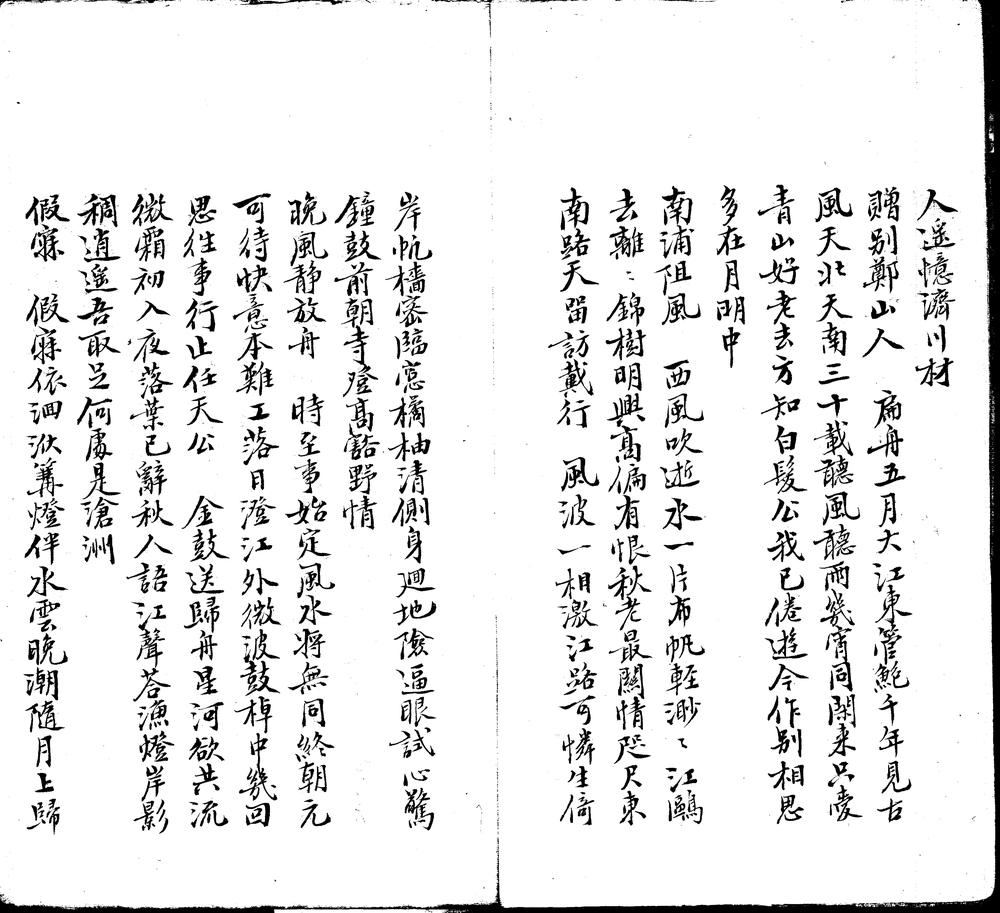 人遥憶濟川材
贈别鄭山人　扁舟五月大江東管鮑千年見古
風天北天南三十載聽風聽雨幾宵同閑来只愛
青山好老去方知白髮公我已倦遊今作别相思
多在月明中
南浦阻風　西風吹逝水一片布帆輕渺〻江鷗
去離〻錦樹明興高偏有恨秋老最關情咫尺東
南路天留訪戴行　風波一相激江路可憐生倚
岸帆檣密臨窓橘柚清側身廻地險逼眼試心驚
鐘鼓前朝寺登髙豁野情
晚風静放舟　時至事始定風水将無同終朝元
可待快意本難工落日澄江外微波鼓棹中幾回
思徃事行止任天公　金鼓送歸舟星河欲共流
微霜初入夜落葉已辭秋人語江聲荅漁燈岸影
稠逍遥吾取足何處是滄洲
假寐　假寐依洄洑篝燈伴水雲晚潮隨月上歸